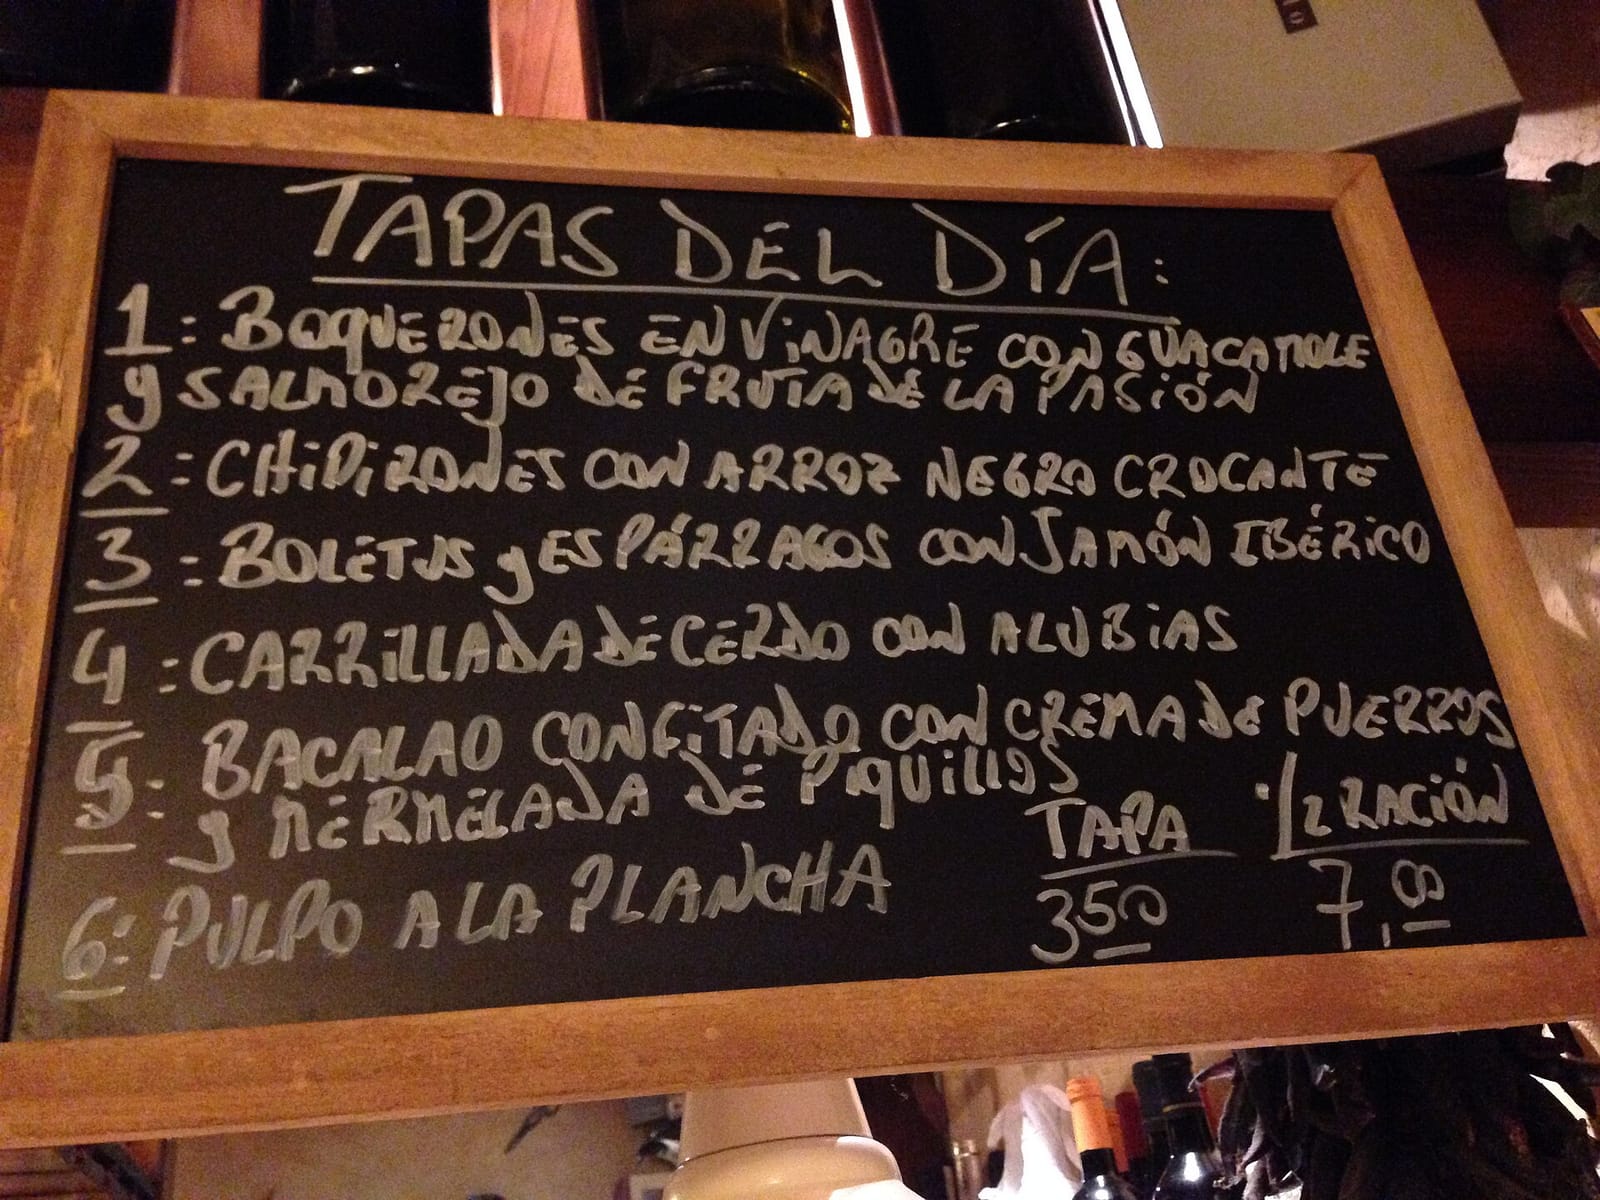 TAPAS DEL DÍA:
1: BOQUERONES EN VINAGRE CON GUACAMOLE
y SALMOREJO DE FRUTA DE LA PASIÓN
2: CHIPIRONES CON ARROZ NEGRO CROCANTE
3: BOLETUS y ESPÁRRAGOS CON JAMÓN IBÉRICO
4: CARRILLADA DE CERDO CON ALUBIAS
5: BACALAO CONFITADO CON CREMA DE PUERROS
y MERMELADA DE PIQUILLOS
TAPA 1/2 RACIÓN
6: PULPO A LA PLANCHA
350 7,00